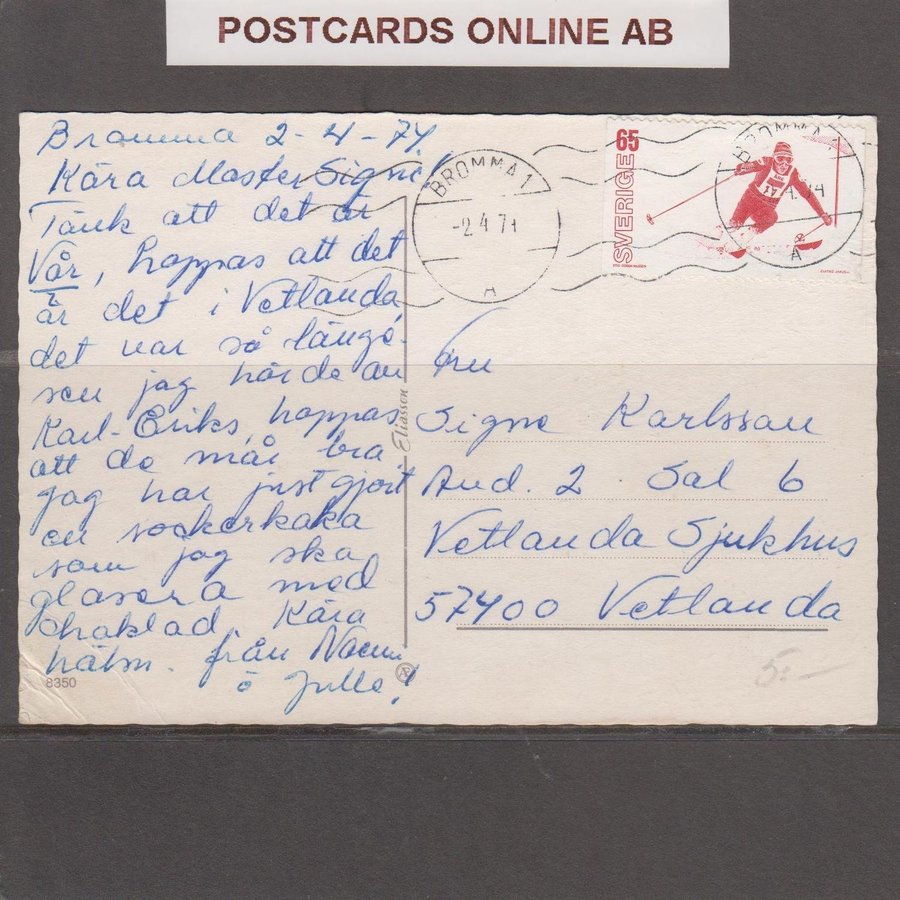 POSTCARDS ONLINE AB
Bromma 2-4-74.
Kära Moster Signe!
Tänk att det är
Vår, hoppas att det
är det i Vetlanda,
det var så länge
sen jag hörde av
Karl-Eriks, hoppas
att de mår bra.
Jag har just gjort
en sockerkaka
som jag ska
glasera med
choklad. Kära
hälsn. från
ö Julle!
8350
Eliasson
Æ
BROMMA 1
-2.4.74
A
65
SVERIGE
BROMMA 1
A
Fru
Signe Karlsson
Avd. 2 Sal 6
Vetlanda Sjukhus
57400 Vetlanda
5:-